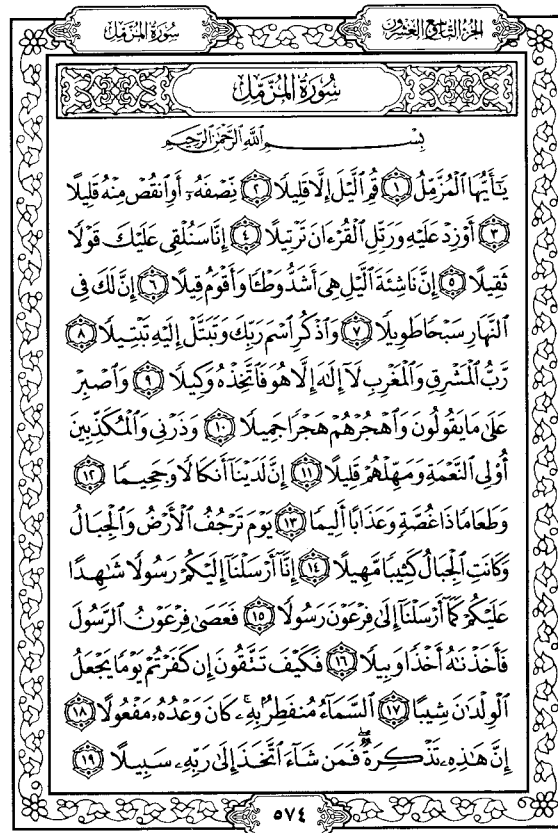 سُورَةُ المُزَّمِّل
الجُزْءُ التَّاسِعُ وَالعِشْرُونَ
سُورَةُ المُزَّمِّلِ
بِسْمِ ٱللَّهِ ٱلرَّحْمَٰنِ ٱلرَّحِيمِ
يَٰٓأَيُّهَا ٱلْمُزَّمِّلُ ١ قُمِ ٱلَّيْلَ إِلَّا قَلِيلًا ٢ نِّصْفَهُۥٓ أَوِ ٱنقُصْ مِنْهُ قَلِيلًا
٣ أَوْ زِدْ عَلَيْهِ وَرَتِّلِ ٱلْقُرْءَانَ تَرْتِيلًا ٤ إِنَّا سَنُلْقِى عَلَيْكَ قَوْلًا
ثَقِيلًا ٥ إِنَّ نَاشِئَةَ ٱلَّيْلِ هِىَ أَشَدُّ وَطْـًٔا وَأَقْوَمُ قِيلًا ٦ إِنَّ لَكَ فِى
ٱلنَّهَارِ سَبْحًا طَوِيلًا ٧ وَٱذْكُرِ ٱسْمَ رَبِّكَ وَتَبَتَّلْ إِلَيْهِ تَبْتِيلًا ٨
رَّبُّ ٱلْمَشْرِقِ وَٱلْمَغْرِبِ لَآ إِلَٰهَ إِلَّا هُوَ فَٱتَّخِذْهُ وَكِيلًا ٩ وَٱصْبِرْ
عَلَىٰ مَا يَقُولُونَ وَٱهْجُرْهُمْ هَجْرًا جَمِيلًا ١٠ وَذَرْنِى وَٱلْمُكَذِّبِينَ
أُو۟لِى ٱلنَّعْمَةِ وَمَهِّلْهُمْ قَلِيلًا ١١ إِنَّ لَدَيْنَآ أَنكَالًا وَجَحِيمًا ١٢
وَطَعَامًا ذَا غُصَّةٍ وَعَذَابًا أَلِيمًا ١٣ يَوْمَ تَرْجُفُ ٱلْأَرْضُ وَٱلْجِبَالُ
وَكَانَتِ ٱلْجِبَالُ كَثِيبًا مَّهِيلًا ١٤ إِنَّآ أَرْسَلْنَآ إِلَيْكُمْ رَسُولًا شَٰهِدًا
عَلَيْكُمْ كَمَآ أَرْسَلْنَآ إِلَىٰ فِرْعَوْنَ رَسُولًا ١٥ فَعَصَىٰ فِرْعَوْنُ ٱلرَّسُولَ
فَأَخَذْنَٰهُ أَخْذًا وَبِيلًا ١٦ فَكَيْفَ تَتَّقُونَ إِن كَفَرْتُمْ يَوْمًا يَجْعَلُ
ٱلْوِلْدَٰنَ شِيبًا ١٧ ٱلسَّمَآءُ مُنفَطِرٌۢ بِهِۦ ۚ كَانَ وَعْدُهُۥ مَفْعُولًا ١٨
إِنَّ هَٰذِهِۦ تَذْكِرَةٌ ۖ فَمَن شَآءَ ٱتَّخَذَ إِلَىٰ رَبِّهِۦ سَبِيلًا ١٩
٥٧٤